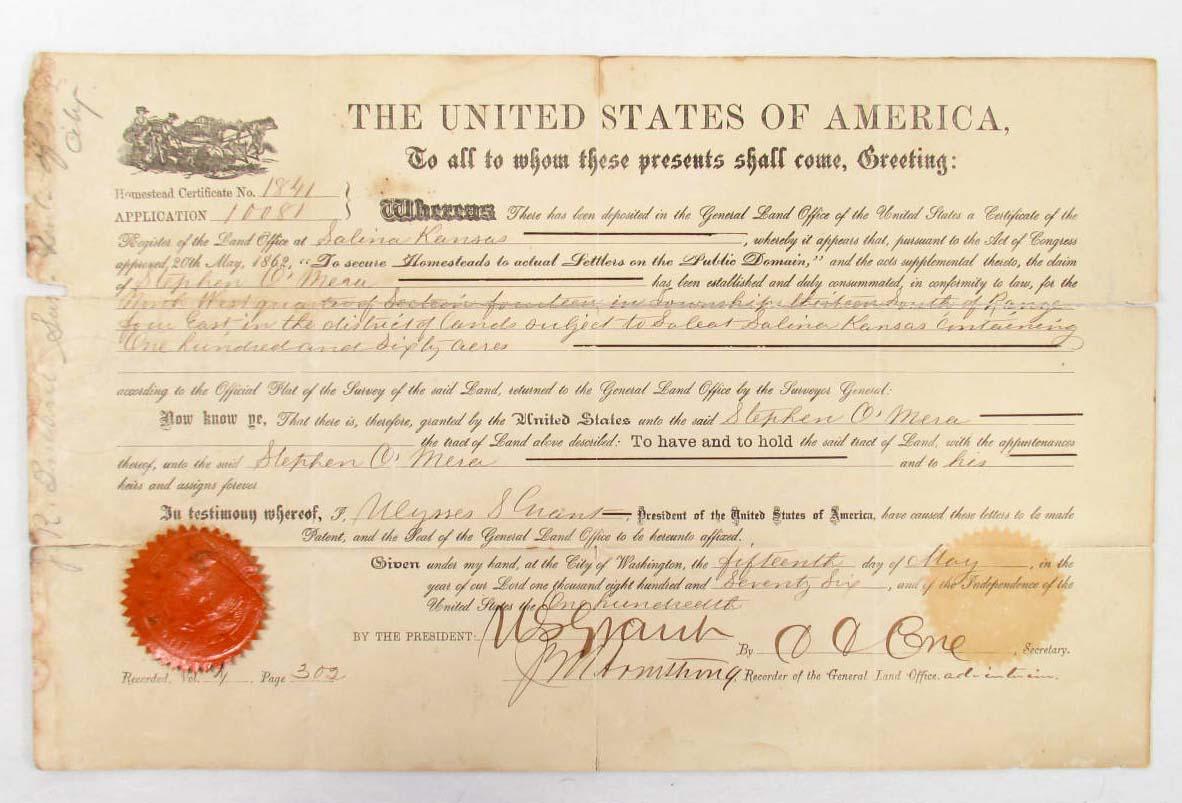 THE UNITED STATES OF AMERICA,
To all to whom these presents shall come, Greeting:
Homestead Certificate No. 1841
APPLICATION 10081
Whereas There has been deposited in the General Land Office of the United States a Certificate of the
Register of the Land Office at Salina Kansas, whereby it appears that, pursuant to the Act of Congress
approved 20th May, 1862, "To secure Homesteads to actual Settlers on the Public Domain," and the acts supplemental thereto, the claim
of Stephen O'Mera has been established and duly consummated, in conformity to law, for the
North West quarter of Section fourteen in Township thirteen South of Range
four East in the district of lands subject to Sale at Salina Kansas Containing
One hundred and Sixty acres
according to the Official Plat of the Survey of the said Land, returned to the General Land Office by the Surveyor General:
Now know ye, That there is, therefore, granted by the United States unto the said Stephen O'Mera
the tract of Land above described: To have and to hold the said tract of Land, with the appurtenances
thereof, unto the said Stephen O'Mera and to his
heirs and assigns forever
In testimony whereof, I, Ulysses S Grant, President of the United States of America, have caused these letters to be made
Patent, and the Seal of the General Land Office to be hereunto affixed.
Given under my hand, at the City of Washington, the fifteenth day of May, in the
year of our Lord one thousand eight hundred and Seventy Six, and of the Independence of the
United States the One hundredth
BY THE PRESIDENT: U S Grant
By D D Cone, Secretary.
Recorded, Vol. 4, Page 302
Armstrong, Recorder of the General Land Office. ad interim.